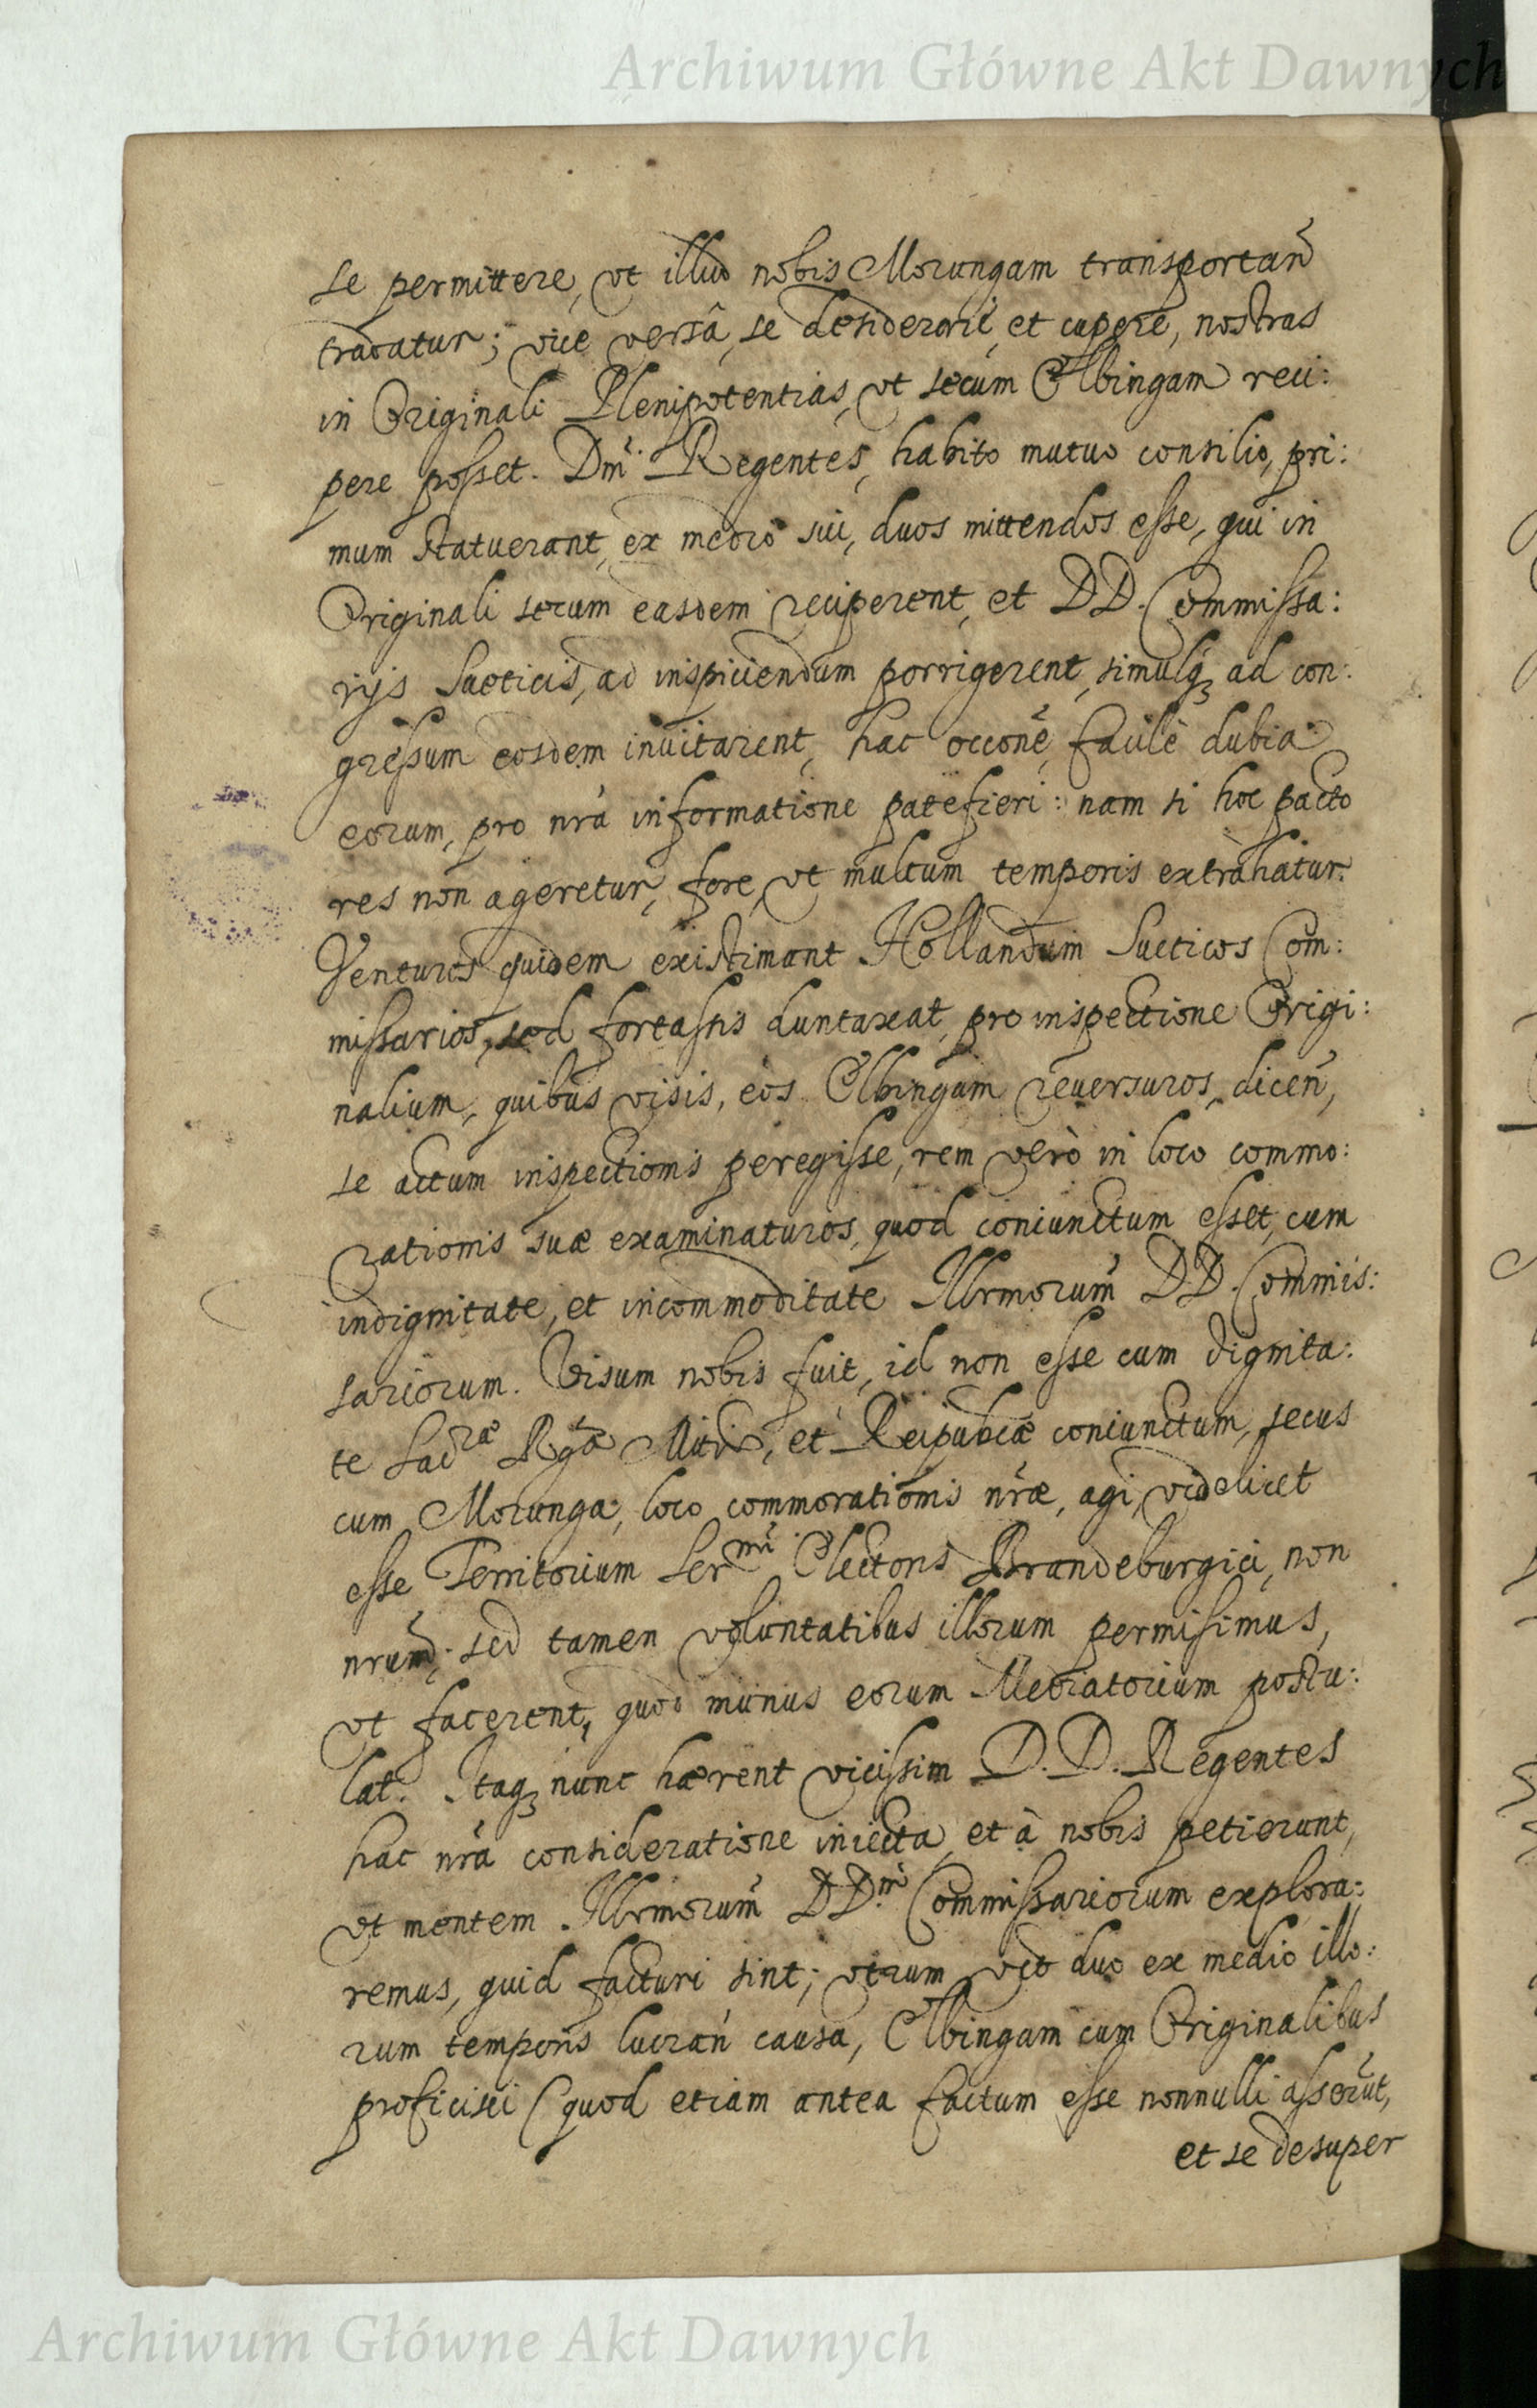 Archiwum Główne Akt Dawnych
se permittere, vt illud nobis Morungam transportan̄
tradatur; vice versâ, se desiderare, et cupere, nostras
in Originali Plenipotentias, vt secum Elbingam reci:
pere posset. Dn̄i Regentes, habito mutuo consilio, pri:
mum statuerant, ex medio sui, duos mittendos esse, qui in
Originali secum easdem reciperent, et DD. Commissa:
rijs Sueticis, ad inspiciendum porrigerent, simulq́ ad con:
gressum eosdem inuitarent, hac occōne, facilè dubia
eorum, pro nrā informatione patefieri: nam si hoc pacto
res non ageretur, fore, vt multum temporis extrahatur.
Venturos quidem existimant Hollandum Sueticos Com:
missarios, sed fortassis duntaxat, pro inspectione Origi:
nalium, quibus visis, eos Elbingam reuersuros, dicen̄,
se actum inspectionis peregisse, rem verò in loco commo:
rationis suæ examinaturos, quod coniunctum esset, cum
indignitate, et incommoditate Illrmorum̄ DD. Commis:
sariorum. Visum nobis fuit, id non esse cum dignita:
te Sacræ Rgæ Mttis, et Reipubcæ coniunctum, secus
cum Morunga, loco commorationis nr̄æ, agi, videlicet
esse Territorium Sermi Electoris Brandeburgici, non
nrum̄; sed tamen voluntatibus illorum permisimus,
vt facerent, quod munus eorum Mediatorium postu:
lat. Itaq́ nunc hærent vicissim D.D. Regentes
hac nrā consideratione iniecta, et à nobis petierunt,
vt mentem Illrmorum̄ DD.m Commissariorum explora:
remus, quid facturi sint; vtrum vēlt duo ex medio illo:
rum temporis lucran̄ causa, Elbingam cum Originalibus
proficisci (quod etiam antea factum esse nonnulli asserūt,
et se desuper
Archiwum Główne Akt Dawnych